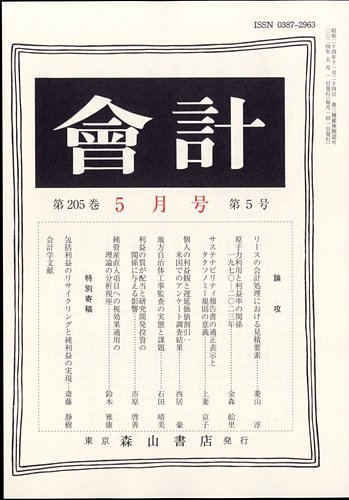 ISSN 0387-2963
昭和二十四年十一月二十四日 第三種郵便物認可
二〇二四年 五月 一日発行(毎月一回一日発行)
會計
第205巻 5月号 第5号
論攻
リースの会計処理における見積要素 菱山 淳
原子力利用と利益率の関係
一九七〇―二〇二三年 金森 絵里
サステナビリティ報告書の適正表示と
タクソノミー規則の意義 上妻 京子
個人の利益観と遅延価値割引:
米国でのアンケート調査結果 西居 豪
地方自治体工事監査の実態と課題 石田 晴美
利益の質が配当と研究開発投資の
関係に与える影響 市原 啓善
純資産直入項目への税効果適用の
理論の分析視座 鈴木 雅康
特別寄稿
包括利益のリサイクリングと純利益の実現 斎藤 静樹
会計学文献
東京 森山書店 発行